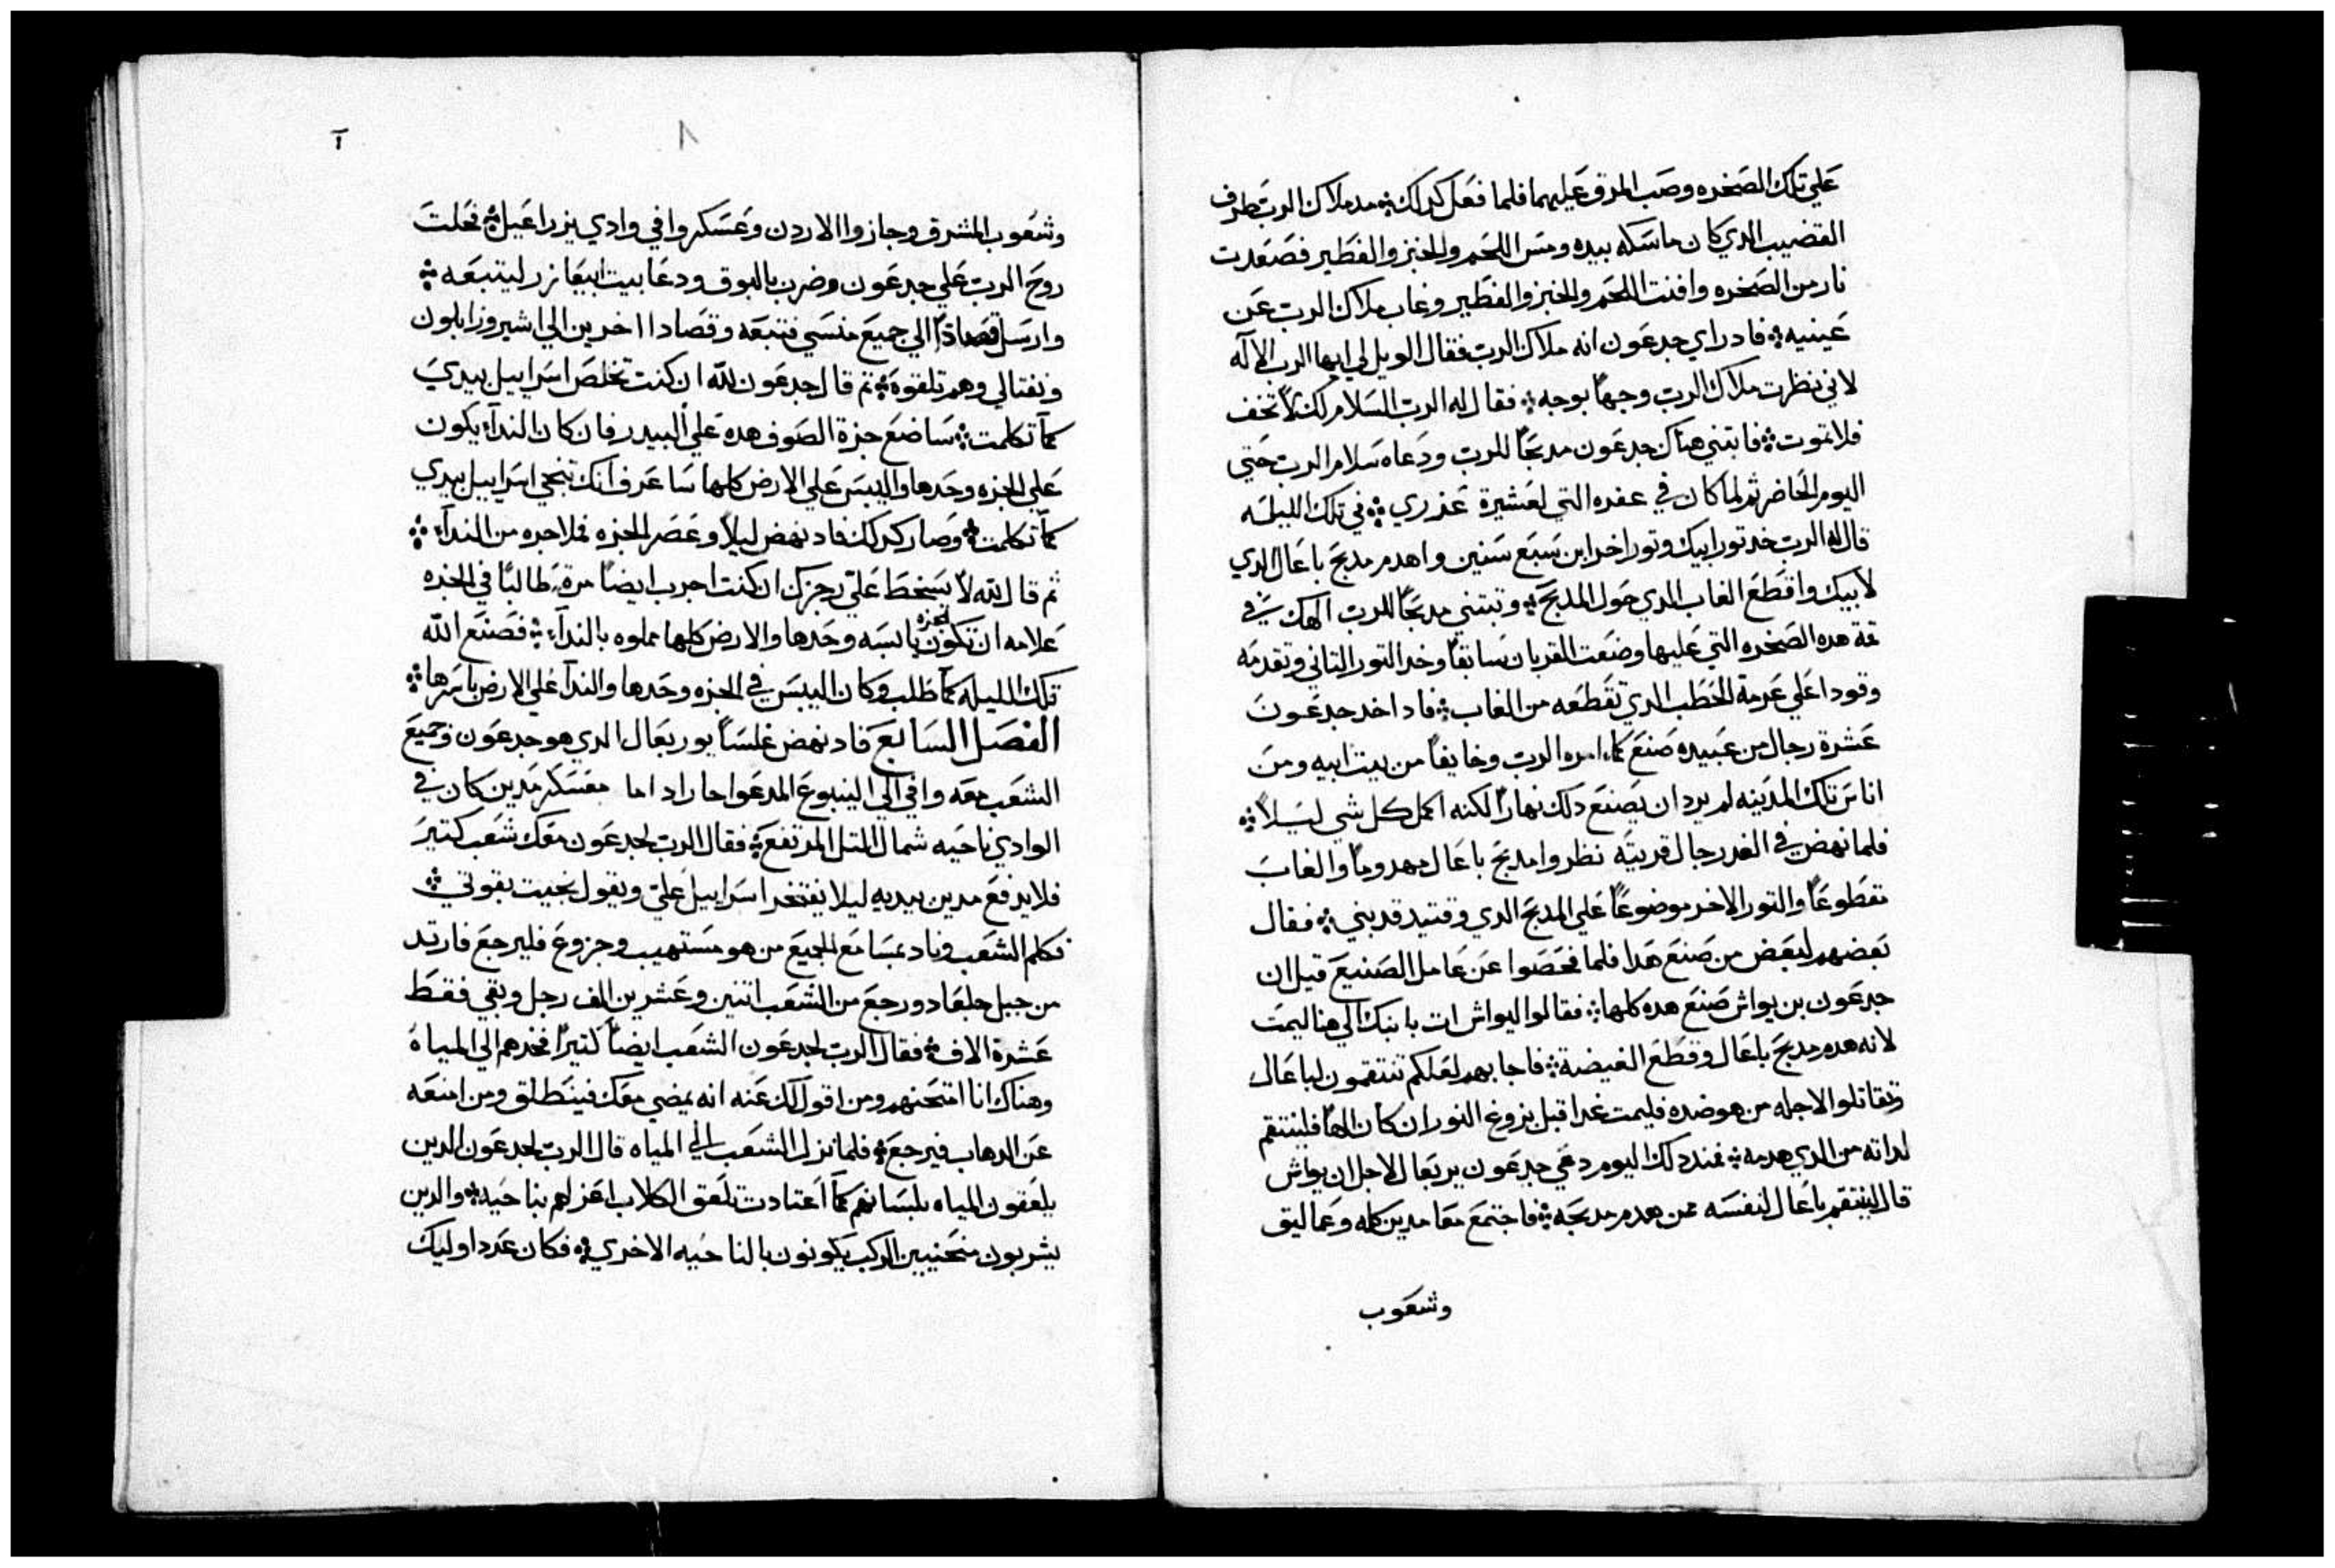 علي تلك الصخره وصب المرق عليهما فلما فعل كدلك ܀ مد ملاك الرب طرف
القضيب الدي كان ماسكه بيده ومس اللحم والخبز والفطير فصعدت
نار من الصخره وافنت اللحم والخبز والفطير وغاب ملاك الرب عن
عينيه ܀ فاد راي جدعون انه ملاك الرب فقال الويل لي ايها الرب الاله
لاني نظرت ملاك الرب وجهاً بوجه ܀ فقال له الرب السلام لك لا تخف
فلا تموت ܀ فابتني هناك جدعون مدبحاً للرب ودعاه سلام الرب حتي
اليوم الحاضر ثم لما كان في عفره التي لعشيرة عذري ܀ في تلك الليله
قال له الرب خد تور ابيك وتور اخر ابن سبع سنين واهدم مدبح باعال الدي
لابيك واقطع الغاب الدي حول المدبح ܀ وتبتني مدبحاً للرب الهك في
قمة هده الصخره التي عليها وضعت القربان سابقاً وخد التور التاني وتقدمه
وقودا علي عرمة الحطب الدي تقطعه من الغاب ܀ فاد اخد جدعون
عشرة رجال من عبيده صنع كما امره الرب وخايفاً من بيت ابيه ومن
اناس تلك المدينه لم يرد ان يصنع دلك نهاراً لكنه اكمل كل شي ليلاً ܀
فلما نهض في الغد رجال قريته نظروا مدبح باعال مهدوماً والغاب
مقطوعاً والتور الاخر موضوعاً علي المدبح الدي وقتيد قد بني ܀ فقال
بعضهم لبعض من صنع هدا فلما فحصوا عن عامل الصنيع قيل ان
جدعون بن يواش صنع هده كلها ܀ فقالوا ليواش ات بابنك الي هنا ليمت
لانه هدم مدبح باعال وقطع الغيضة ܀ فاجابهم لعلكم تنتقمون لباعال
وتقاتلوا لاجله من هو ضده فليمت غدا قبل بزوغ النور ان كان الهاً فلينتقم
لداته من الدي هدمه ܀ فمند دلك اليوم دعي جدعون يربعال لاجل ان يواش
قال لينتقم باعال لنفسه ممن هدم مدبحه ܀ فاجتمع معا مدين كله وعماليق
وشعوب
٨
وشعوب المشرق وجازوا الاردن وعسكروا في وادي يزراعيل ܀ فحلت
روح الرب علي جدعون وضرب بالبوق ودعا بيت ابيعازر ليتبعه ܀
وارسل قصاداً الي جميع منسي فتبعه وقصادا اخرين الي اشير وزابلون
ونفتالي وهم تلقوه ܀ تم قال جدعون لله ان كنت تخلص اسراييل بيدي
كما تكلمت ܀ ساضع جزة الصوف هده علي البيدر فان كان الندآء يكون
علي الجزه وحدها واليبس علي الارض كلها ساعرف انك تنجي اسراييل بيدي
كما تكلمت ܀ وصار كدلك فاد نهض ليلاً وعصر الجزه فملا جره من الندآء ܀
ثم قال لله لا يسخط علي رجزك ان كنت اجرب ايضاً مرة طالباً في الجزه
علامه ان تكون الجزه يابسه وحدها والارض كلها مملوه بالندآء ܀ فصنع الله
تلك الليله كما طلب وكان اليبس في الجزه وحدها والندآ علي الارض باسرها ܀
الفصل السابع فاد نهض غلساً يوربعال الدي هو جدعون وجميع
الشعب معه وافي الي الينبوع المدعوا حاراد اما معسكر مدين كان في
الوادي ناحيه شمال التل المرتفع ܀ فقال الرب لجدعون معك شعب كتير
فلا يدفع مدين بيديه ليلا يفتخر اسراييل علي ويقول نجيت بقوتي ܀
تكلم الشعب وناد بمسامع الجميع من هو مستهيب وجزوع فليرجع فارتد
من جبل جلعاد ورجع من الشعب اتنين وعشرين الف رجل وبقي فقط
عشرة الاف ܀ فقال الرب لجدعون الشعب ايضاً كتيراً فخدهم الي المياه
وهناك انا امتحنهم ومن اقول لك عنه انه يمضي معك فينطلق ومن امنعه
عن الدهاب فيرجع ܀ فلما نزل الشعب الي المياه قال الرب لجدعون الدين
يلعقون المياه بلسانهم كما اعتادت تلعق الكلاب اعزلهم بناحيه ܀ والدين
يشربون منحنيين الركب يكونون بالناحيه الاخري ܀ فكان عدد اوليك